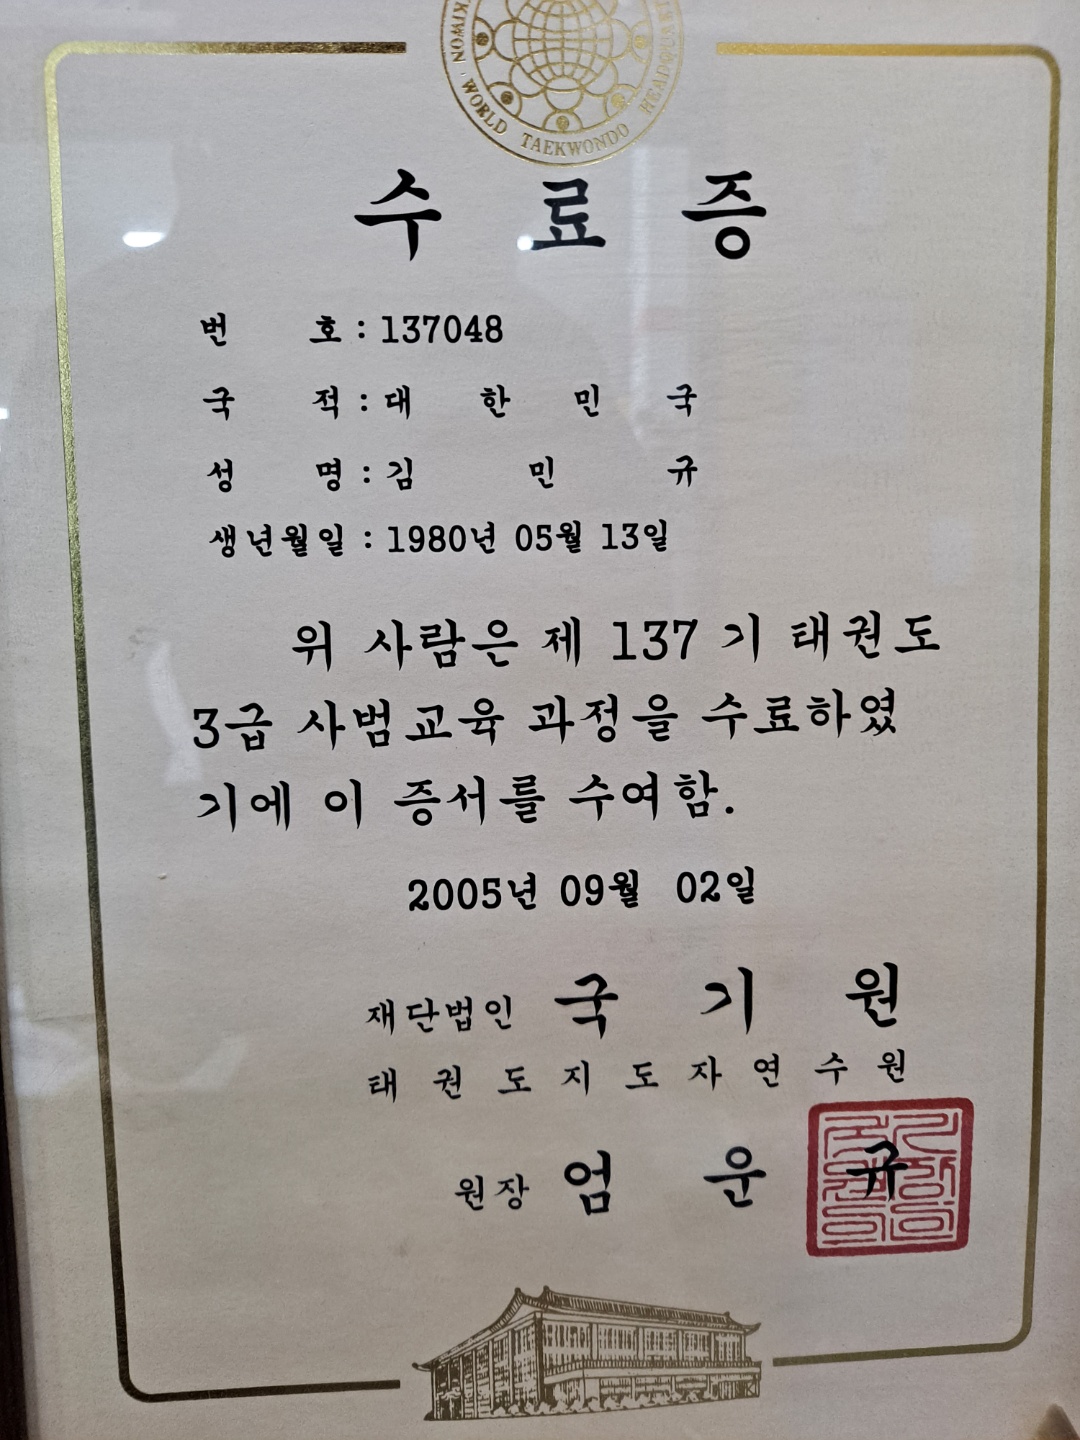 KIWON · WORLD TAEKWONDO HEADQUART
수 료 증
번 호 : 137048
국 적 : 대 한 민 국
성 명 : 김 민 규
생년월일 : 1980년 05월 13일
위 사람은 제 137 기 태권도
3급 사범교육 과정을 수료하였
기에 이 증서를 수여함.
2005년 09월 02일
재단법인 국 기 원
태 권 도 지 도 자 연 수 원
원장 엄 운 규